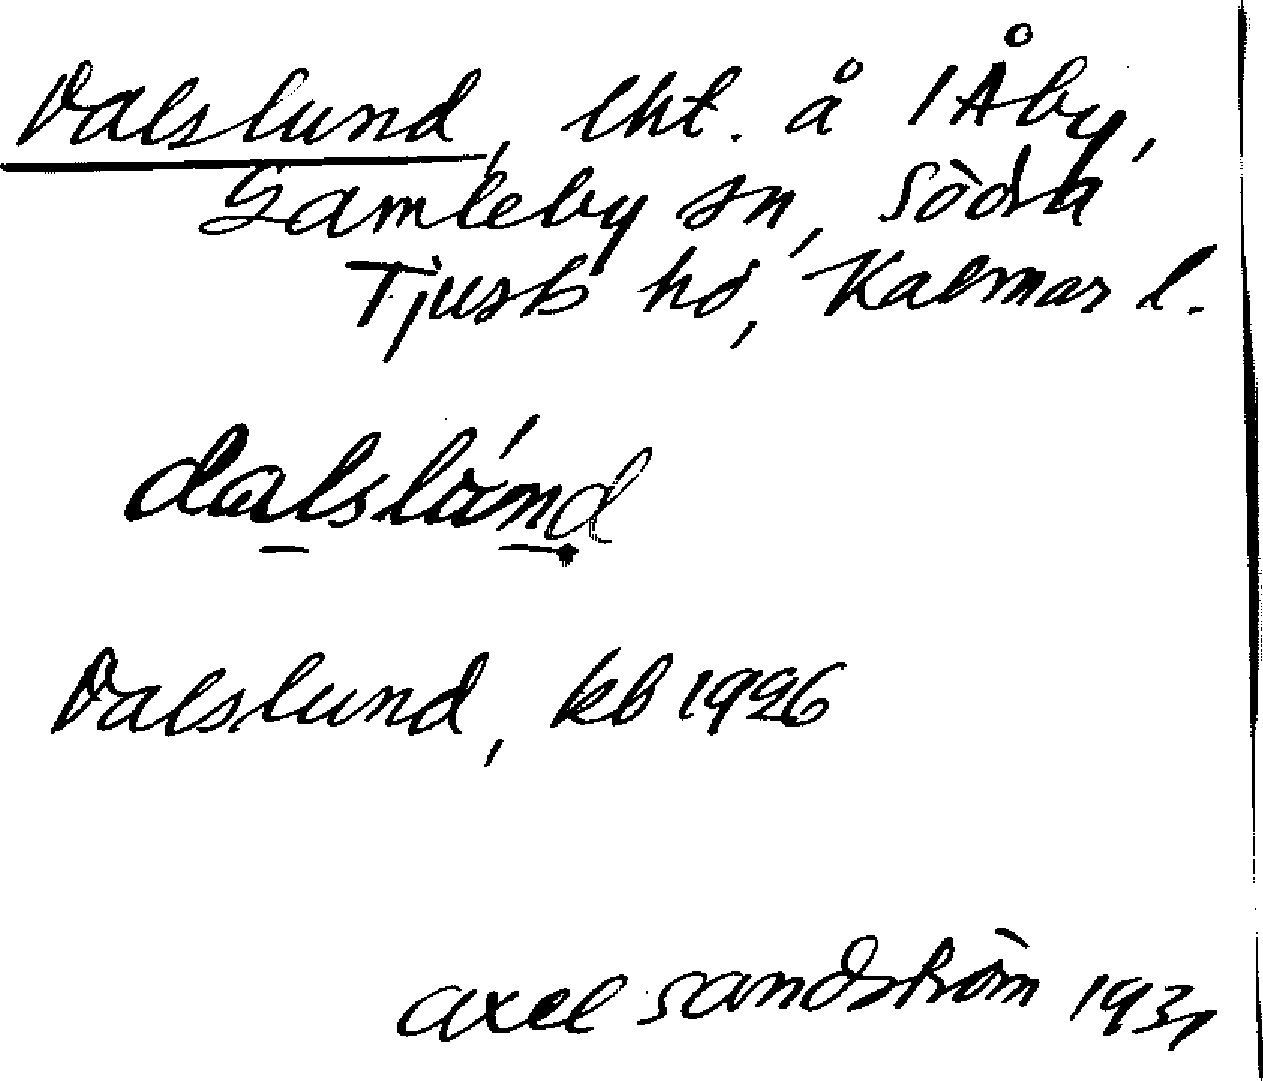 Dalslund, lht. å 1 Åby,
Gamleby sn, Södra
Tjusts hd, Kalmar l.
dalslund
Dalslund, kb 1926
Axel Sandström 1931